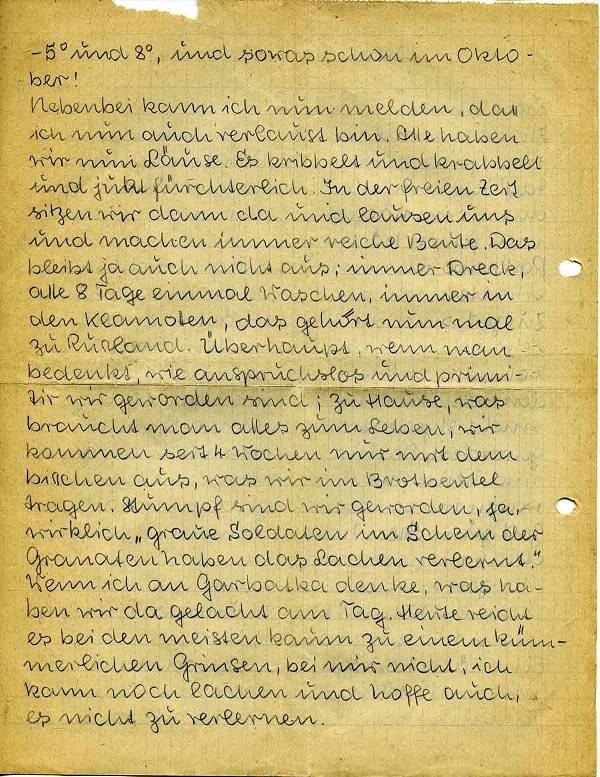 -5° und 8°, und sowas schon im Okto-
ber!
Nebenbei kann ich nun melden, daß
ich nun auch verlaust bin. Alle haben
wir nun Läuse. Es kribbelt und krabbelt
und jukt fürchterlich. In der freien Zeit
sitzen wir dann da und lausen uns
und machen immer reiche Beute. Das
bleibt ja auch nicht aus; immer Dreck,
alle 8 Tage einmal Waschen, immer in
den Klamoten, das gehört nun mal
zu Rußland. Überhaupt, wenn man
bedenkt, wie anspruchslos und primi-
tiv wir geworden sind; zu Hause, was
braucht man alles zum Leben, wir
kommen seit 4 Wochen nur mit dem
bißchen aus, was wir im Brotbeutel
tragen. Stumpf sind wir geworden, ja
wirklich „graue Soldaten im Schein der
Granaten haben das Lachen verlernt."
Wenn ich an Garbatka denke, was ha-
ben wir da gelacht am Tag. Heute reicht
es bei den meisten kaum zu einem küm-
merlichen Grinsen, bei mir nicht, ich
kann noch lachen und hoffe auch,
es nicht zu verlernen.